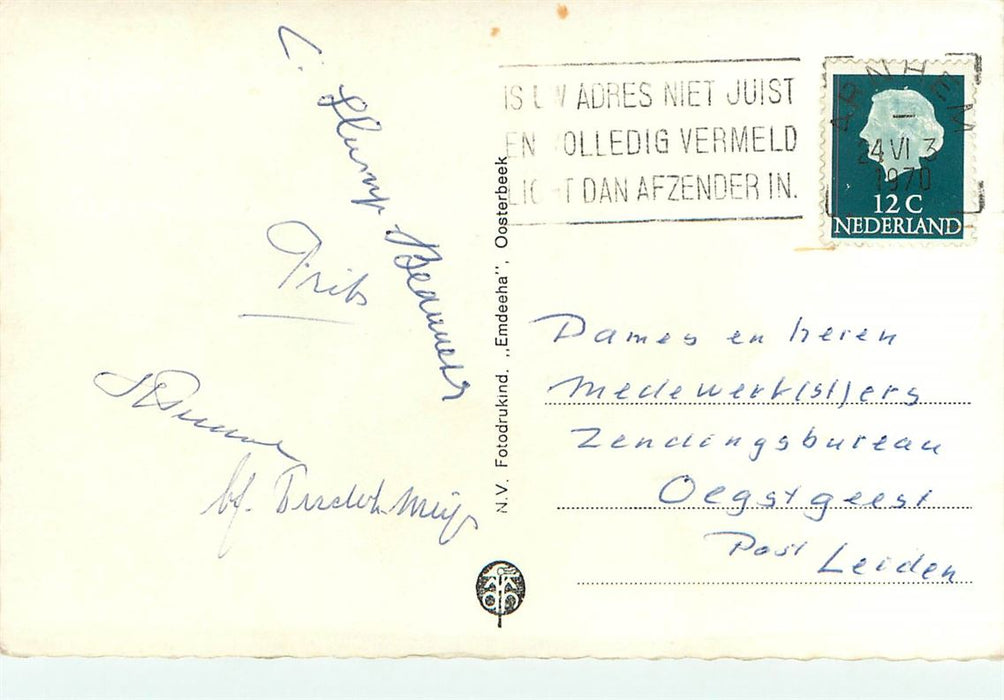 IS UW ADRES NIET JUIST
EN VOLLEDIG VERMELD
LICHT DAN AFZENDER IN.
ARNHEM
24 VI 3
1970
12 C
NEDERLAND
Frits
N.V. Fotodrukind. „Emdeeha”, Oosterbeek
Dames en heren
Medewerk(st)ers
Zendingsbureau
Oegstgeest
Post Leiden